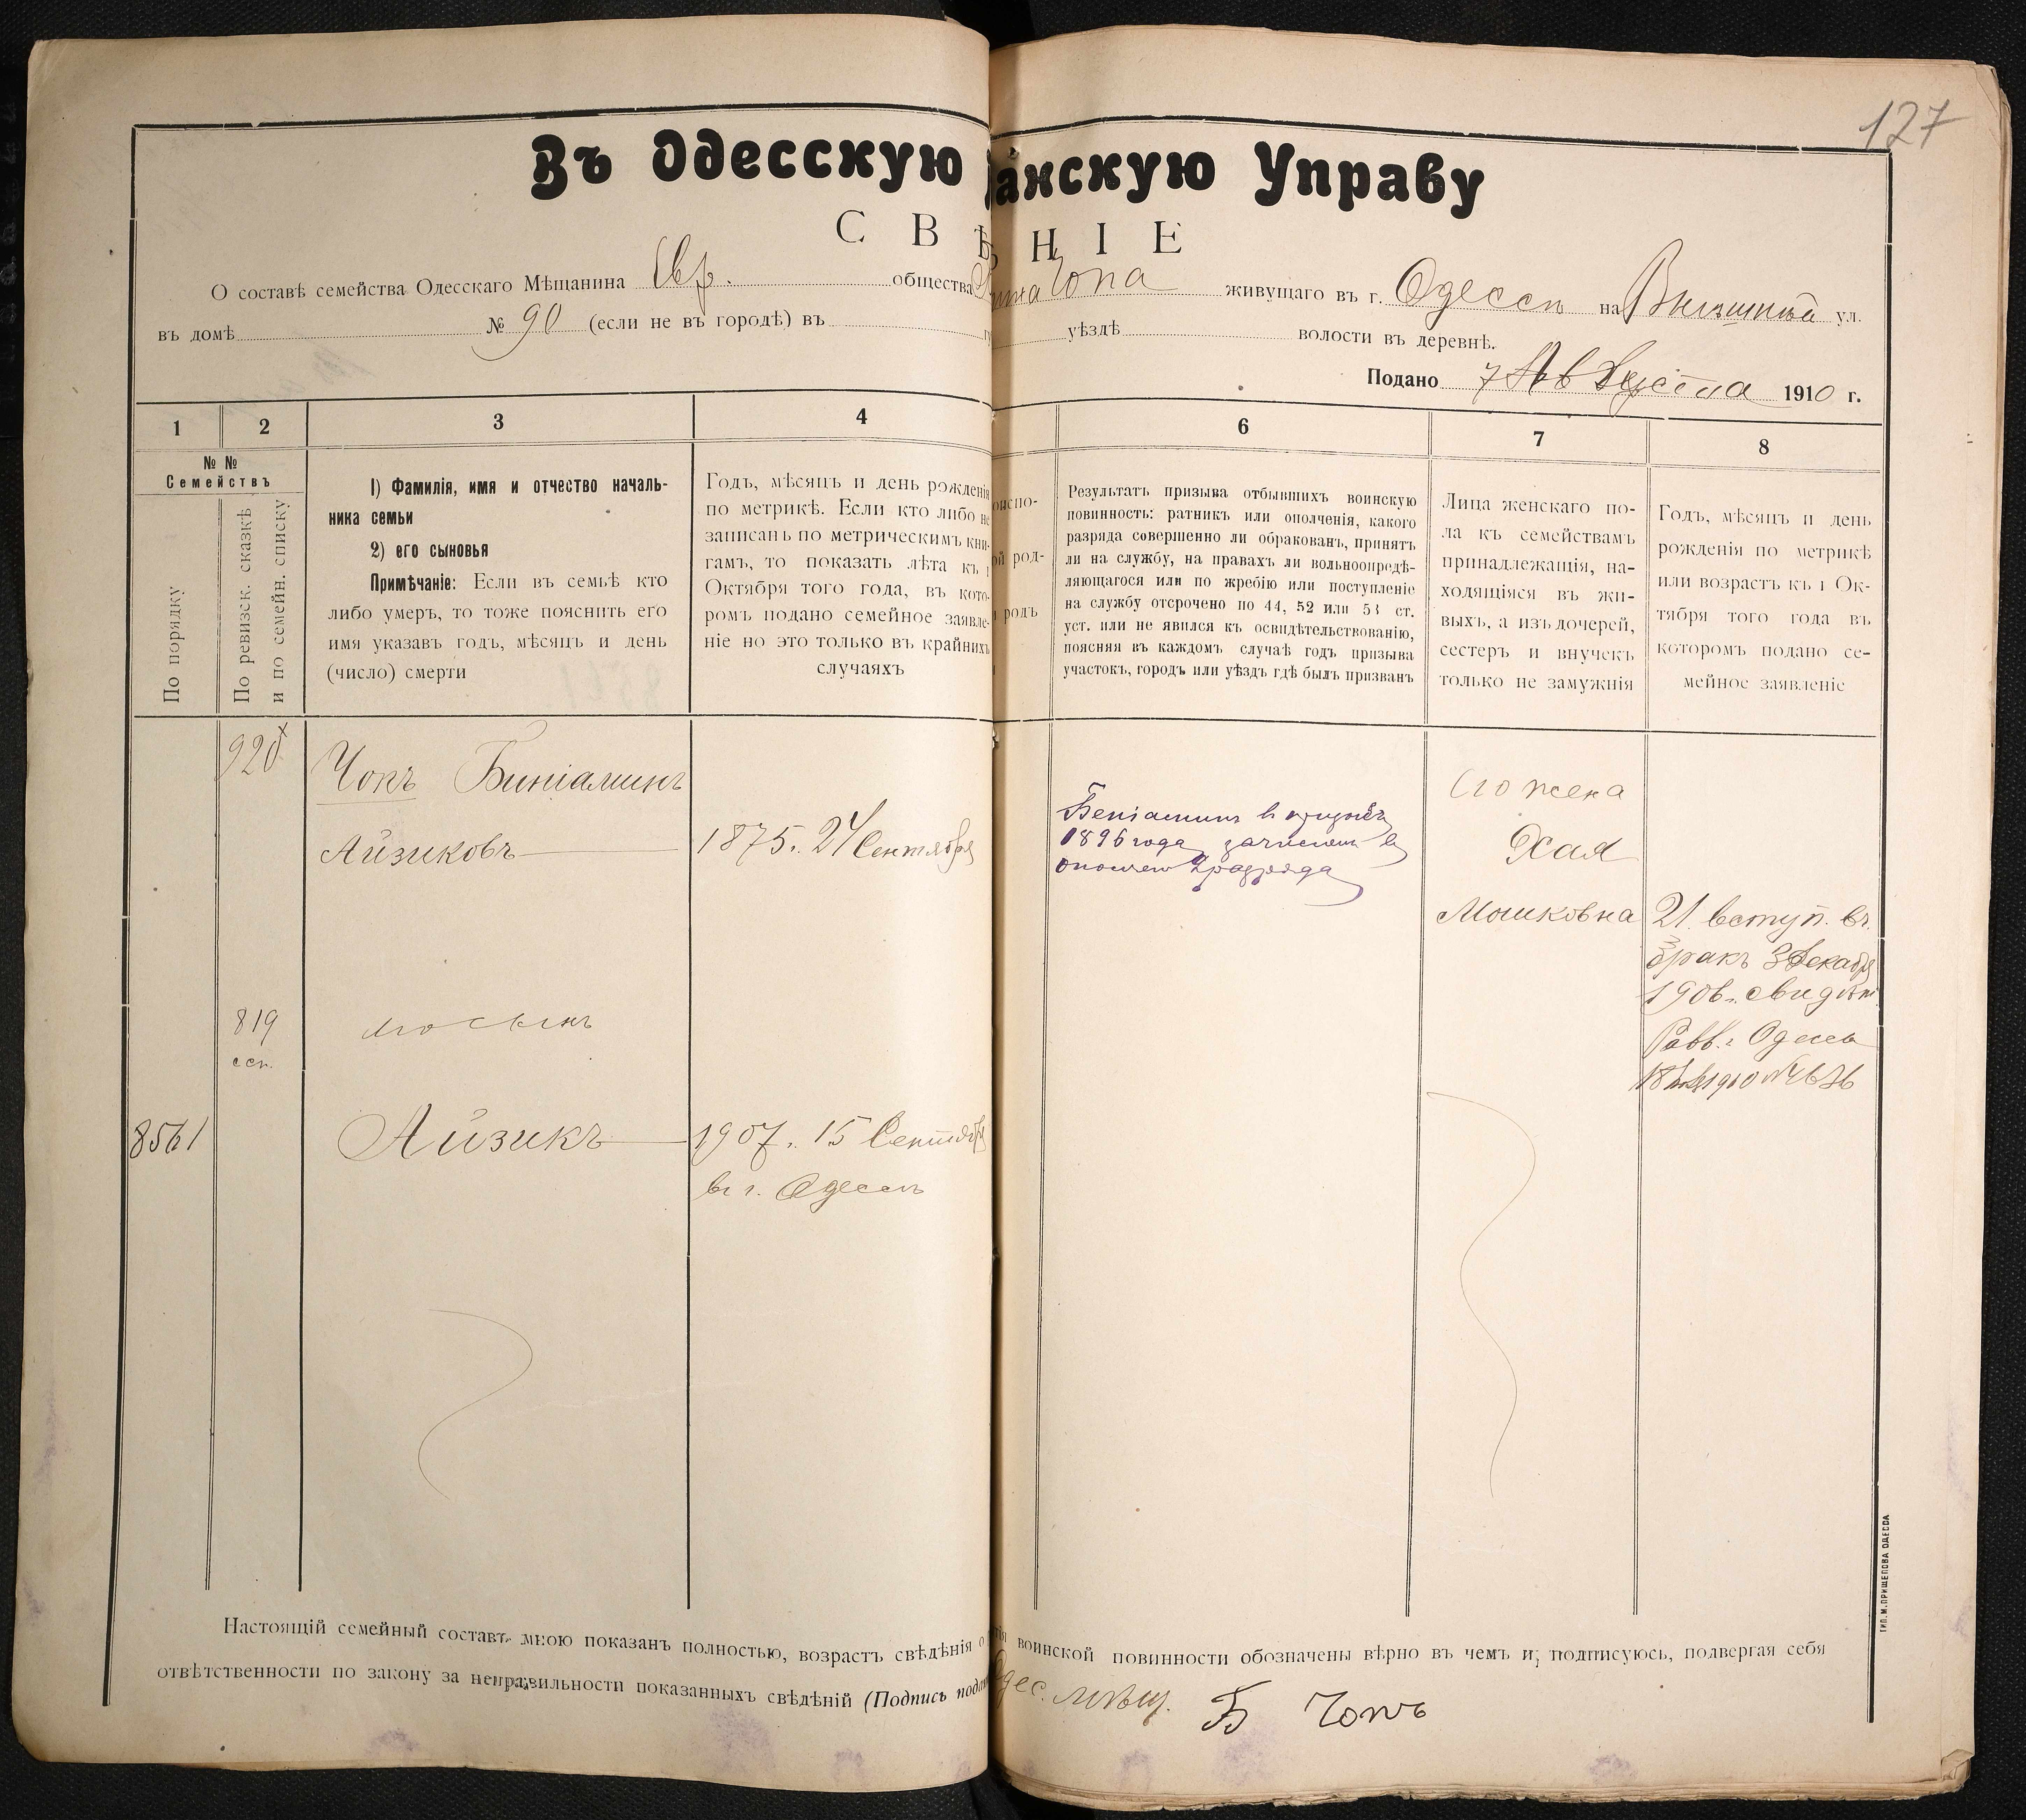 127
Въ Одесскую анскую Управу
С В Ѣ Н І Е
О составѣ семейства Одесскаго Мѣщанина Евр. общества Чопа живущаго въ г. Одессѣ на ул.
въ домѣ № 90 (если не въ городѣ) въ уѣздѣ волости въ деревнѣ.
Подано 7 Августа 1910 г.
1 2 3 4 6 7 8
№ №
Семействъ
По порядку
По ревизск. сказкѣ
и по семейн. списку
1) Фамилія, имя и отчество началь-
ника семьи
2) его сыновья
Примѣчаніе: Если въ семьѣ кто
либо умеръ, то тоже пояснить его
имя указавъ годъ, мѣсяцъ и день
(число) смерти
Годъ, мѣсяцъ и день рожденія
по метрикѣ. Если кто либо не
записанъ по метрическимъ кни-
гамъ, то показать лѣта къ 1
Октября того года, въ кото-
ромъ подано семейное заявле-
ніе но это только въ крайнихъ
случаяхъ
испо-
род-
родъ
Результатъ призыва отбывшихъ воинскую
повинность: ратникъ или ополченія, какого
разряда совершенно ли обракованъ, принятъ
ли на службу, на правахъ ли вольноопредѣ-
ляющагося или по жребію или поступленіе
на службу отсрочено по 44, 52 или 53 ст.
уст. или не явился къ освидѣтельствованію,
поясняя въ каждомъ случаѣ годъ призыва
участокъ, городъ или уѣздъ гдѣ былъ призванъ
Лица женскаго по-
ла къ семействамъ
принадлежащія, на-
ходящіяся въ жи-
выхъ, а изъ дочерей,
сестеръ и внучекъ
только не замужнія
Годъ, мѣсяцъ и день
рожденія по метрикѣ
или возрастъ къ 1 Ок-
тября того года въ
которомъ подано се-
мейное заявленіе
920
Чопъ Биніаминъ
Айзиковъ
1875 г. 24 Сентября
Беніаминъ в призывъ
1896 года зачисленъ в
ополчен 2 разряда
Его жена
Хая
Мошковна
21 вступ. въ
бракъ 3 Декабря
1906 г. свидѣт
Равв. г. Одессы
1910 №
819
сен.
его сынъ
8561
Айзикъ
1907 г. 15 Сентября
въ г. Одессѣ
Настоящій семейный составъ мною показанъ полностью, возрастъ свѣдѣнія о воинской повинности обозначены вѣрно въ чемъ и подписуюсь, подвергая себя
отвѣтственности по закону за неправильности показанныхъ свѣдѣній (Подпись Одес. мѣщ. Б Чопъ
ТИП. М. ПРИЩЕПОВА ОДЕССА